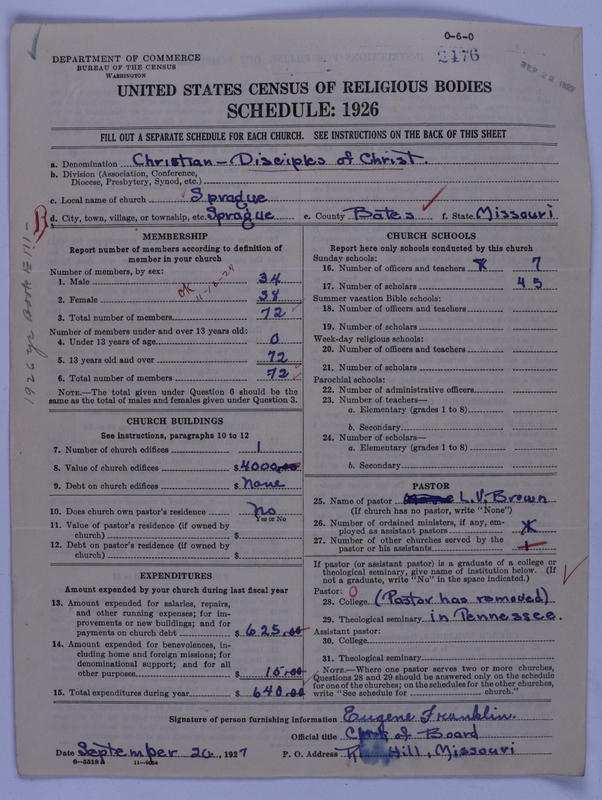 0-6-0
DEPARTMENT OF COMMERCE
BUREAU OF THE CENSUS
WASHINGTON
2476
UNITED STATES CENSUS OF RELIGIOUS BODIES
SCHEDULE: 1926
FILL OUT A SEPARATE SCHEDULE FOR EACH CHURCH. SEE INSTRUCTIONS ON THE BACK OF THIS SHEET
a. Denomination Christian - Disciples of Christ.
b. Division (Association, Conference, Diocese, Presbytery, Synod, etc.)
c. Local name of church Sprague
d. City, town, village, or township, etc. Sprague e. County Bates f. State Missouri
MEMBERSHIP
Report number of members according to definition of
member in your church
Number of members, by sex:
1. Male 34
OK 11-16-29
2. Female 38
3. Total number of members 72
Number of members under and over 13 years old:
4. Under 13 years of age 0
5. 13 years old and over 72
6. Total number of members 72
NOTE.—The total given under Question 6 should be
same as the total of males and females given under Question 3.
CHURCH BUILDINGS
See instructions, paragraphs 10 to 12
7. Number of church edifices 1
8. Value of church edifices $4000.00
9. Debt on church edifices $ None
10. Does church own pastor's residence No
Yes or No
11. Value of pastor's residence (if owned by
church) $
12. Debt on pastor's residence (if owned by
church) $
EXPENDITURES
Amount expended by your church during last fiscal year
13. Amount expended for salaries, repairs,
and other running expenses; for im-
provements or new building; and for
payments on church debt $ 625.00
14. Amount expended for benevolences, in-
cluding home and foreign missions; for
denominational support; and for all
other purposes 15.00
15. Total expenditures during year $ 640.00
CHURCH SCHOOLS
Report here only schools conducted by this church
Sunday schools:
16. Number of officers and teachers 7
17. Number of scholars 45
Summer vacation Bible schools:
18. Number of officers and teachers
19. Number of scholars
Week-day religious schools:
20. Number of officers and teachers
21. Number of scholars
Parochial schools:
22. Number of administrative officers
23. Number of teachers—
a. Elementary (grades 1 to 8)
b. Secondary
24. Number of scholars—
a. Elementary (grades 1 to 8)
b. Secondary
PASTOR
25. Name of pastor L.V. Brown
(If church has no pastor, write "None")
26. Number of ordained ministers, if any, em-
ployed as assistant pastors
27. Number of other churches served by the
pastor or his assistants 1
If pastor (or assistant pastor) is a graduate of a college or
theological seminary, give name of institution below. (If
not a graduate, write "No" in the space indicated.)
Pastor: 0
28. College (Pastor has removed)
29. Theological seminary in Tennessee.
Assistant pastor:
30. College
31. Theological seminary
NOTE.—Where one pastor serves two or more churches,
Questions 28 and 29 should be answered only on the schedule
for one of the churches; on the schedules for the other churches,
write "See schedule for church."
Signature of person furnishing information Eugene Franklin.
Official title Clerk of Board
Date September 20, 1927 P. O. Address Hill, Missouri